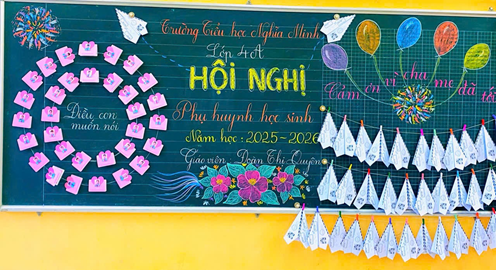 Trường Tiểu học Nghĩa Minh
Lớp 4A
HỘI NGHỊ
Phụ huynh học sinh
Năm học: 2025~2026
Giáo viên Đoàn Thị Quyên
Điều con
muốn nói
Cảm ơn vì cha mẹ đã tới